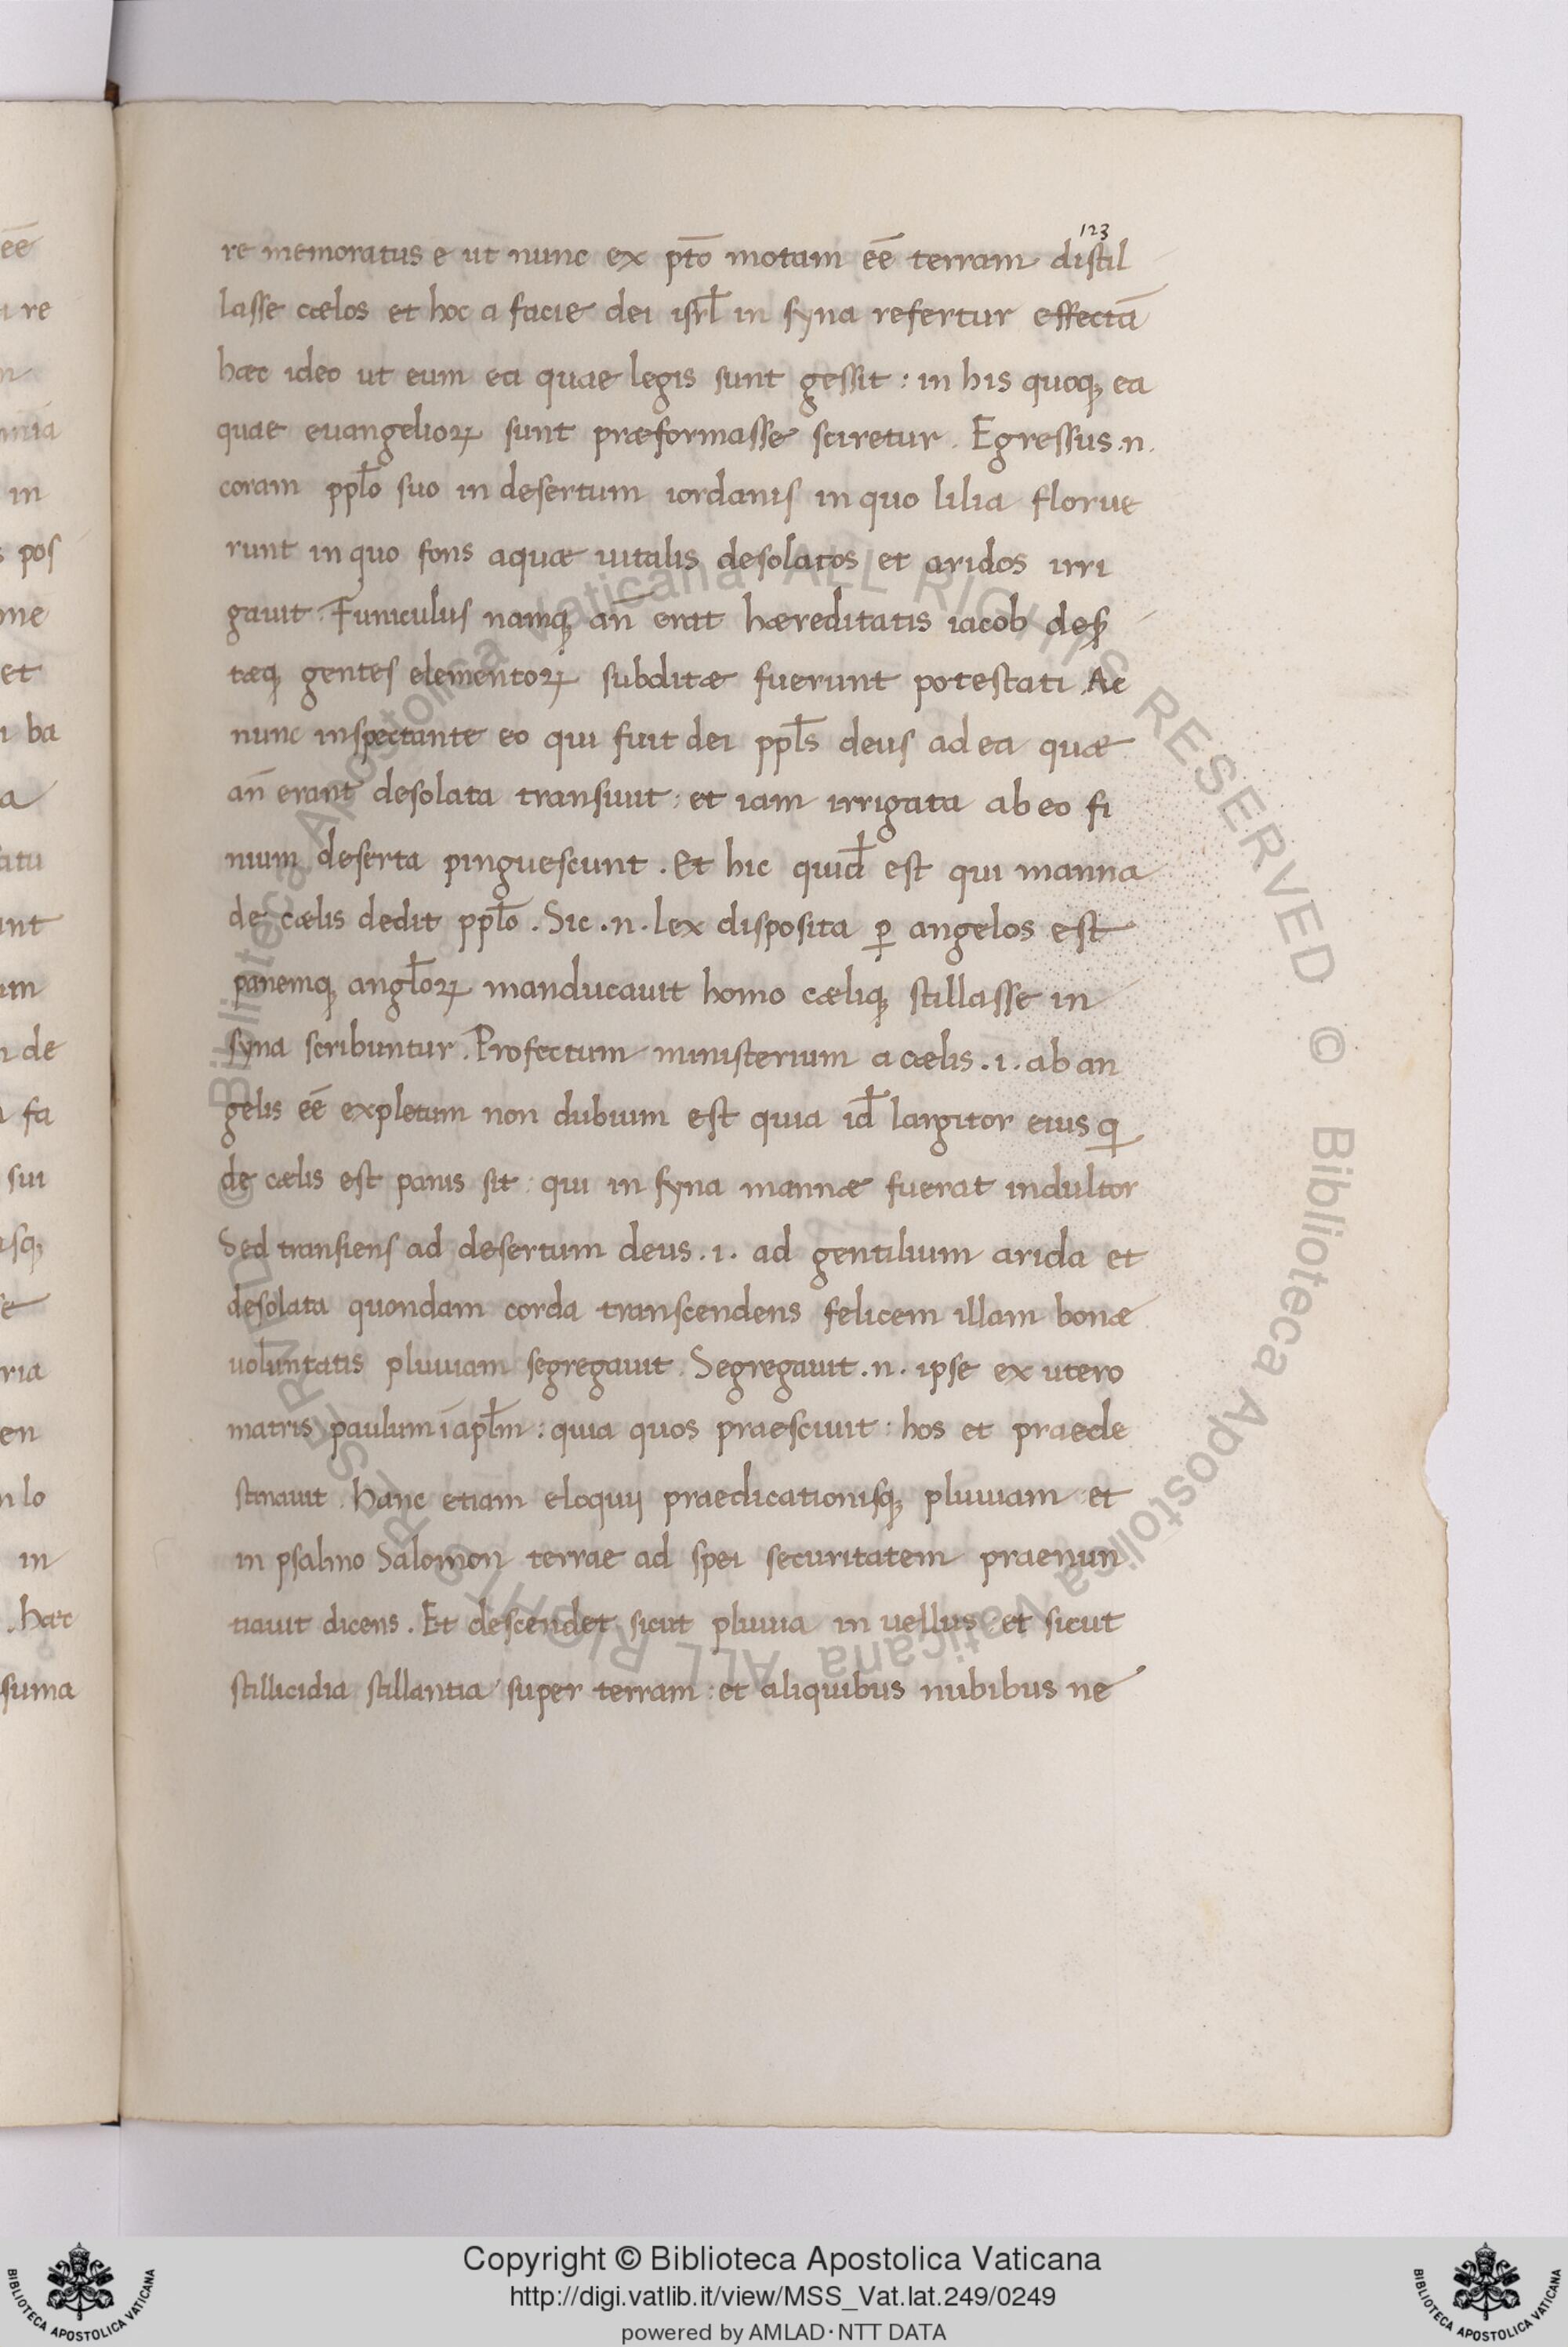 123
re memoratus e ut nunc ex pto̅ motam ee̅ terram distil
lasse cælos et hoc a facie dei isrl̅ in syna refertur effecta̅
hæc ideo ut eum ea quae legis sunt gessit : in his quoq; ea
quae euangelioꝝ sunt præformasse sciretur . Egressus .n.
coram ppl̅o suo in desertum iordanis in quo lilia florue
runt in quo fons aquæ uitalis desolatos et aridos irri
gauit . Funiculus namq; an̅ erat hæreditatis iacob
tæq; gentes elementoꝝ subditæ fuerunt potestati . Ac
nunc inspectante eo qui fuit dei ppl̅s deus ad ea quæ
an̅ erant desolata transiuit : et iam irrigata ab eo fi
nium deserta pinguescunt . Et hic quid̅ est qui manna
de cælis dedit ppl̅o . Sic .n. lex disposita ꝑ angelos est
panemq; angl̅oꝝ manducauit homo cæliq; stillasse in
syna scribuntur . Profectum ministerium a cælis .i. ab an
gelis ee̅ expletum non dubium est quia id̅ largitor eius q
de cælis est panis sit : qui in syna mannæ fuerat indultor
Sed transiens ad desertum deus .i. ad gentilium arida et
desolata quondam corda transcendens felicem illam bonæ
uoluntatis pluuiam segregauit . Segregauit .n. ipse ex utero
matris paulum i̅ apl̅m : quia quos praesciuit : hos et praede
stinauit . Hanc etiam eloquij praedicationisq; pluuiam et
in psalmo Salomon terrae ad spei securitatem praenun
tiauit dicens . Et descendet sicut pluuia in uellus : et sicut
stillicidia stillantia super terram : et aliquibus nubibus ne
ee̅
re
in
pos
me
et
ba
a
unt
um
de
fa
sui
ria
en
lo
in
. Hæc
suma
Copyright © Biblioteca Apostolica Vaticana
http://digi.vatlib.it/view/MSS_Vat.lat.249/0249
powered by AMLAD·NTT DATA
BIBLIOTECA APOSTOLICA VATICANA
BIBLIOTECA APOSTOLICA VATICANA
© Biblioteca Apostolica Vaticana ALL RIGHTS RESERVED © Biblioteca Apostolica Vaticana ALL RIGHTS RESERVED